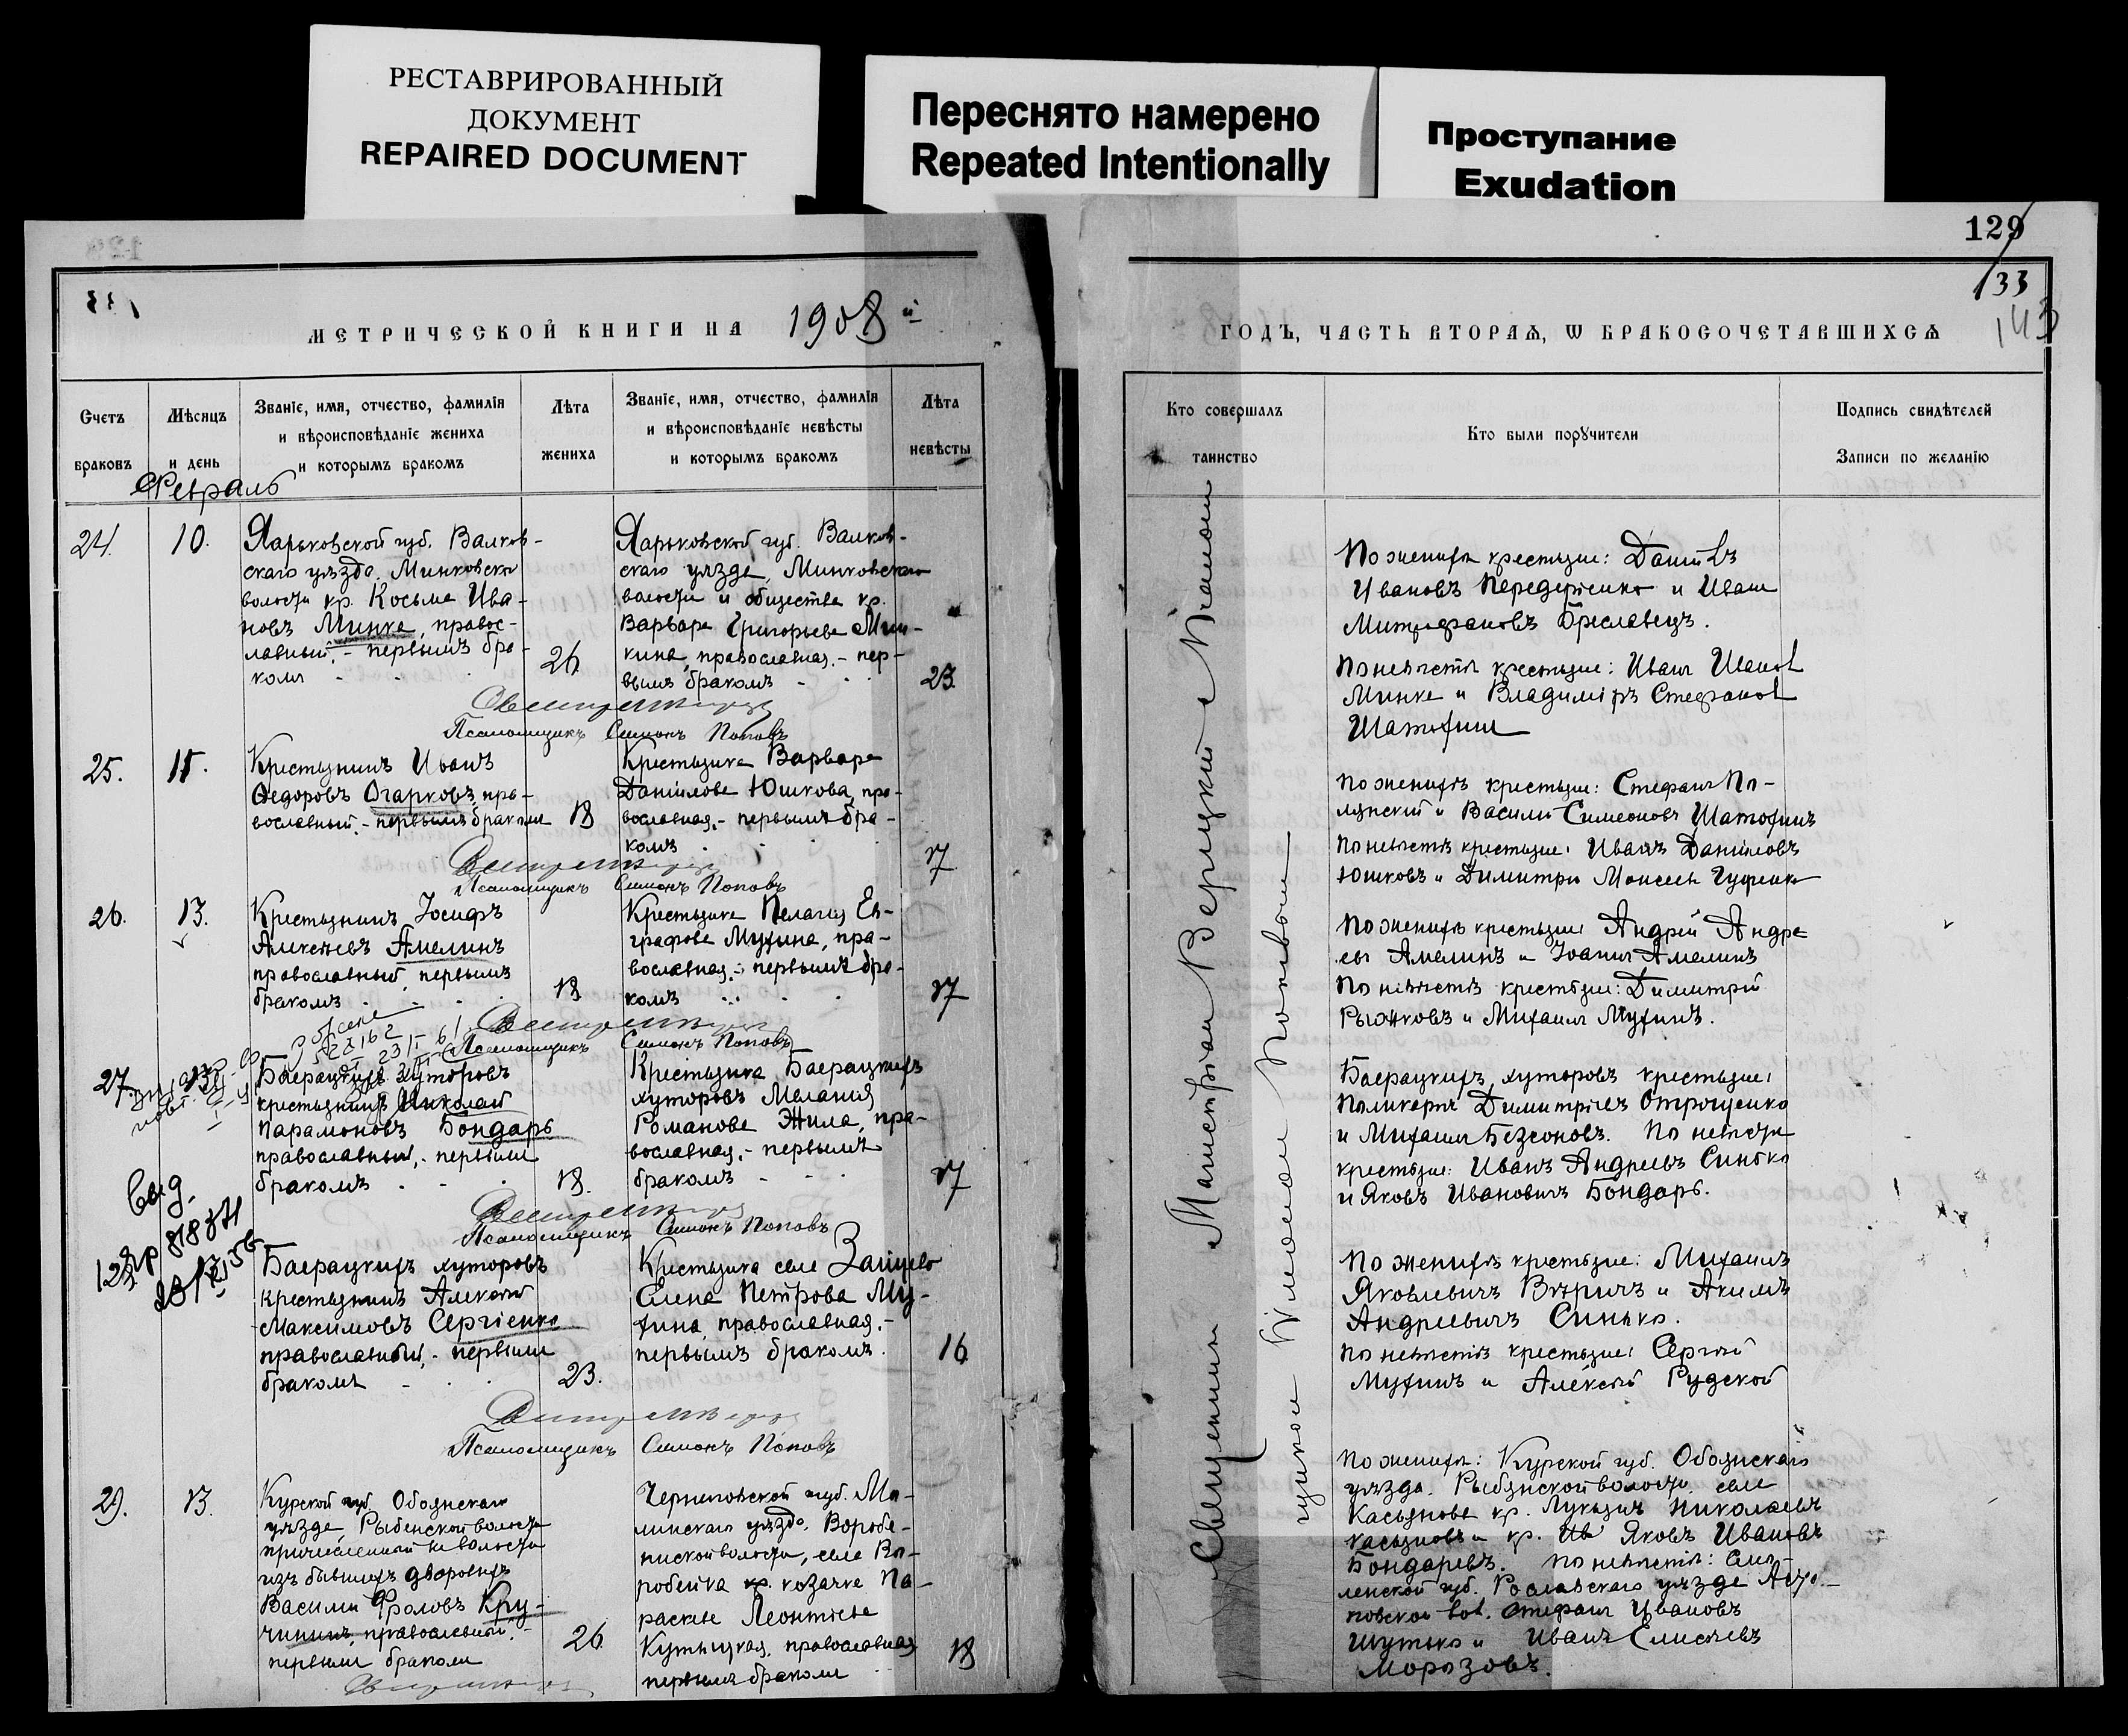 РЕСТАВРИРОВАННЫЙ
ДОКУМЕНТ
REPAIRED DOCUMENT
Переснято намерено
Repeated Intentionally
Проступание
Exudation
129
133
143
МЕТРИЧЕСКОЙ КНИГИ НА 1908 й
ГОДЪ, ЧАСТЬ ВТОРАЯ, Ѡ БРАКОСОЧЕТАВШИХСЯ
Счетъ
браковъ
Мѣсяцъ
и день
Званіе, имя, отчество, фамилія
и вѣроисповѣданіе жениха
и которымъ бракомъ
Лѣта
жениха
Званіе, имя, отчество, фамилія
и вѣроисповѣданіе невѣсты
и которымъ бракомъ
Лѣта
невѣсты
Кто совершалъ
таинство
Кто были поручители
Подпись свидѣтелей
Записи по желанію
Февраль
24.
10.
Харьковской губ. Валков-
скаго уѣзда, Минковской
волости кр. Косьма Ива-
новъ Минка, правос-
лавный, - первымъ бра-
комъ
26
Харьковской губ. Валков-
скаго уѣзда, Минковской
волости и общества кр.
Варвара Григорьева Мин-
кина, православная, - пер-
вымъ бракомъ
23.
Псаломщикъ Симонъ Поповъ
По женихѣ крестьяне: Даніилъ
Ивановъ Передеріенко и Иванъ
Митрофановъ Бреславецъ.
По невѣстѣ крестьяне: Иванъ Ивановъ
Минка и Владиміръ Стефановъ
Шатохинъ
25.
11.
Крестьянинъ Иванъ
Ѳедоровъ Огарковъ, пра-
вославный, - первымъ бракомъ
18
Крестьянка Варвара
Даніилова Юшкова, пра-
вославная, - первымъ бра-
комъ
17
Псаломщикъ Симонъ Поповъ
По женихѣ крестьяне: Стефанъ По-
лунскій и Василій Симеоновъ Шатохинъ
По невѣстѣ крестьяне: Иванъ Даніиловъ
Юшковъ и Димитрій Моисеевъ
26.
13.
Крестьянинъ Іосифъ
Алексѣевъ Амелинъ
православный, первымъ
бракомъ
18
Крестьянка Пелагія Ев-
графова Мухина, пра-
вославная, - первымъ бра-
комъ
17
Псаломщикъ Симонъ Поповъ
По женихѣ крестьяне: Андрей Андре-
евъ Амелинъ и Іоаннъ Амелинъ
По невѣстѣ крестьяне: Димитрій
Рыжковъ и Михаилъ Мухинъ.
27.
13.
Баерацкихъ хуторовъ
крестьянинъ Николай
Парамоновъ Бондарь
православный, - первымъ
бракомъ
18.
Крестьянка Баерацкихъ
хуторовъ Меланія
Романова Жила, пра-
вославная, - первымъ
бракомъ
17
Псаломщикъ Симонъ Поповъ
Баерацкихъ хуторовъ крестьяне:
Поликарпъ Димитріевъ Отрощенко
и Михаилъ Безсоновъ. По невѣстѣ
крестьяне: Иванъ Андреевъ Синько
и Яковъ Ивановичъ Бондарь.
Баерацкихъ хуторовъ
крестьянинъ Алексѣй
Максимовъ Сергіенко
православный, - первымъ
бракомъ
23.
Крестьянка села Зайцево
Елена Петрова Му-
хина, православная, -
первымъ бракомъ.
16
Псаломщикъ Симонъ Поповъ
По женихѣ крестьяне: Михаилъ
Яковлевичъ и Акимъ
Андреевичъ Синько.
По невѣстѣ крестьяне: Сергѣй
Мухинъ и Алексѣй Рудской
29.
13.
Курской губ. Обоянскаго
уѣзда, Рыбенской волости
причисленный къ волости
изъ бывшихъ дворовыхъ
Василій Фроловъ Кру-
чининъ, православный, -
первымъ бракомъ
26
Черниговской губ. Мг-
линскаго уѣзда, Воробе-
инской волости, села Во-
робейна кр. козачка Па-
раскева Леонтіева
Кутницкая, православная
первымъ бракомъ
18
По женихѣ: Курской губ. Обоянскаго
уѣзда, Рыбянской волости, села
Касьянова кр. Лукьянъ Николаевъ
Касьяновъ и кр. Ив Яковъ Ивановъ
Бондаревъ. По невѣстѣ: Смо-
ленской губ. Рославскаго уѣзда
вол. Стефанъ Ивановъ
Шутько и Иванъ Елисеевъ
Морозовъ.
Священникъ Верицкій съ Псалом-
щикомъ Симономъ Поповымъ